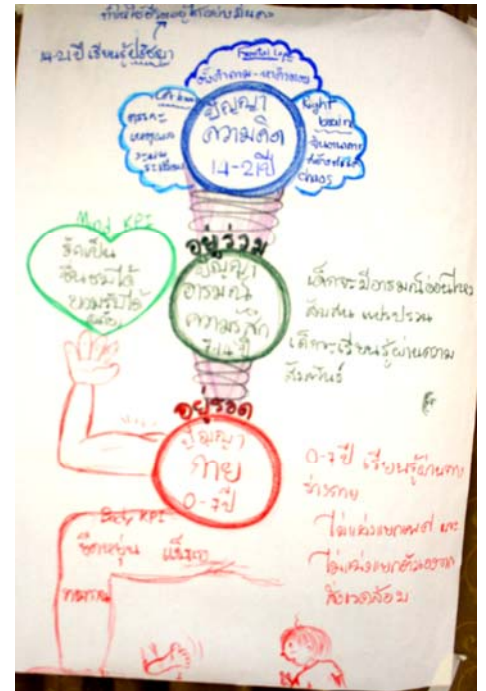 14-21 ปี เรียนรู้ปรัชญา
Frontal Lobe
ตั้งคำถาม - หาคำตอบ
Left brain
ตรรกะ
เหตุผล
ระเบียบ
ปัญญา
ความคิด
14-21 ปี
Right
brain
จินตนาการ
chaos
Mind KPI
ยืดเป็น
ชื่นชมได้
ยอมรับได้
อยู่ร่วม
ปัญญา
อารมณ์
ความรู้สึก
7-14 ปี
เด็กจะมีอารมณ์อ่อนไหว
สับสน แปรปรวน
เด็กจะเรียนรู้ผ่านความ
สัมพันธ์
อยู่รอด
ปัญญา
กาย
0-7 ปี
0-7 ปี เรียนรู้ผ่านทาง
ร่างกาย
ไม่แบ่งแยกเพศ และ
ไม่แบ่งแยกตัวเองจาก
สิ่งแวดล้อม
Body KPI
ยืดหยุ่น แข็งแรง